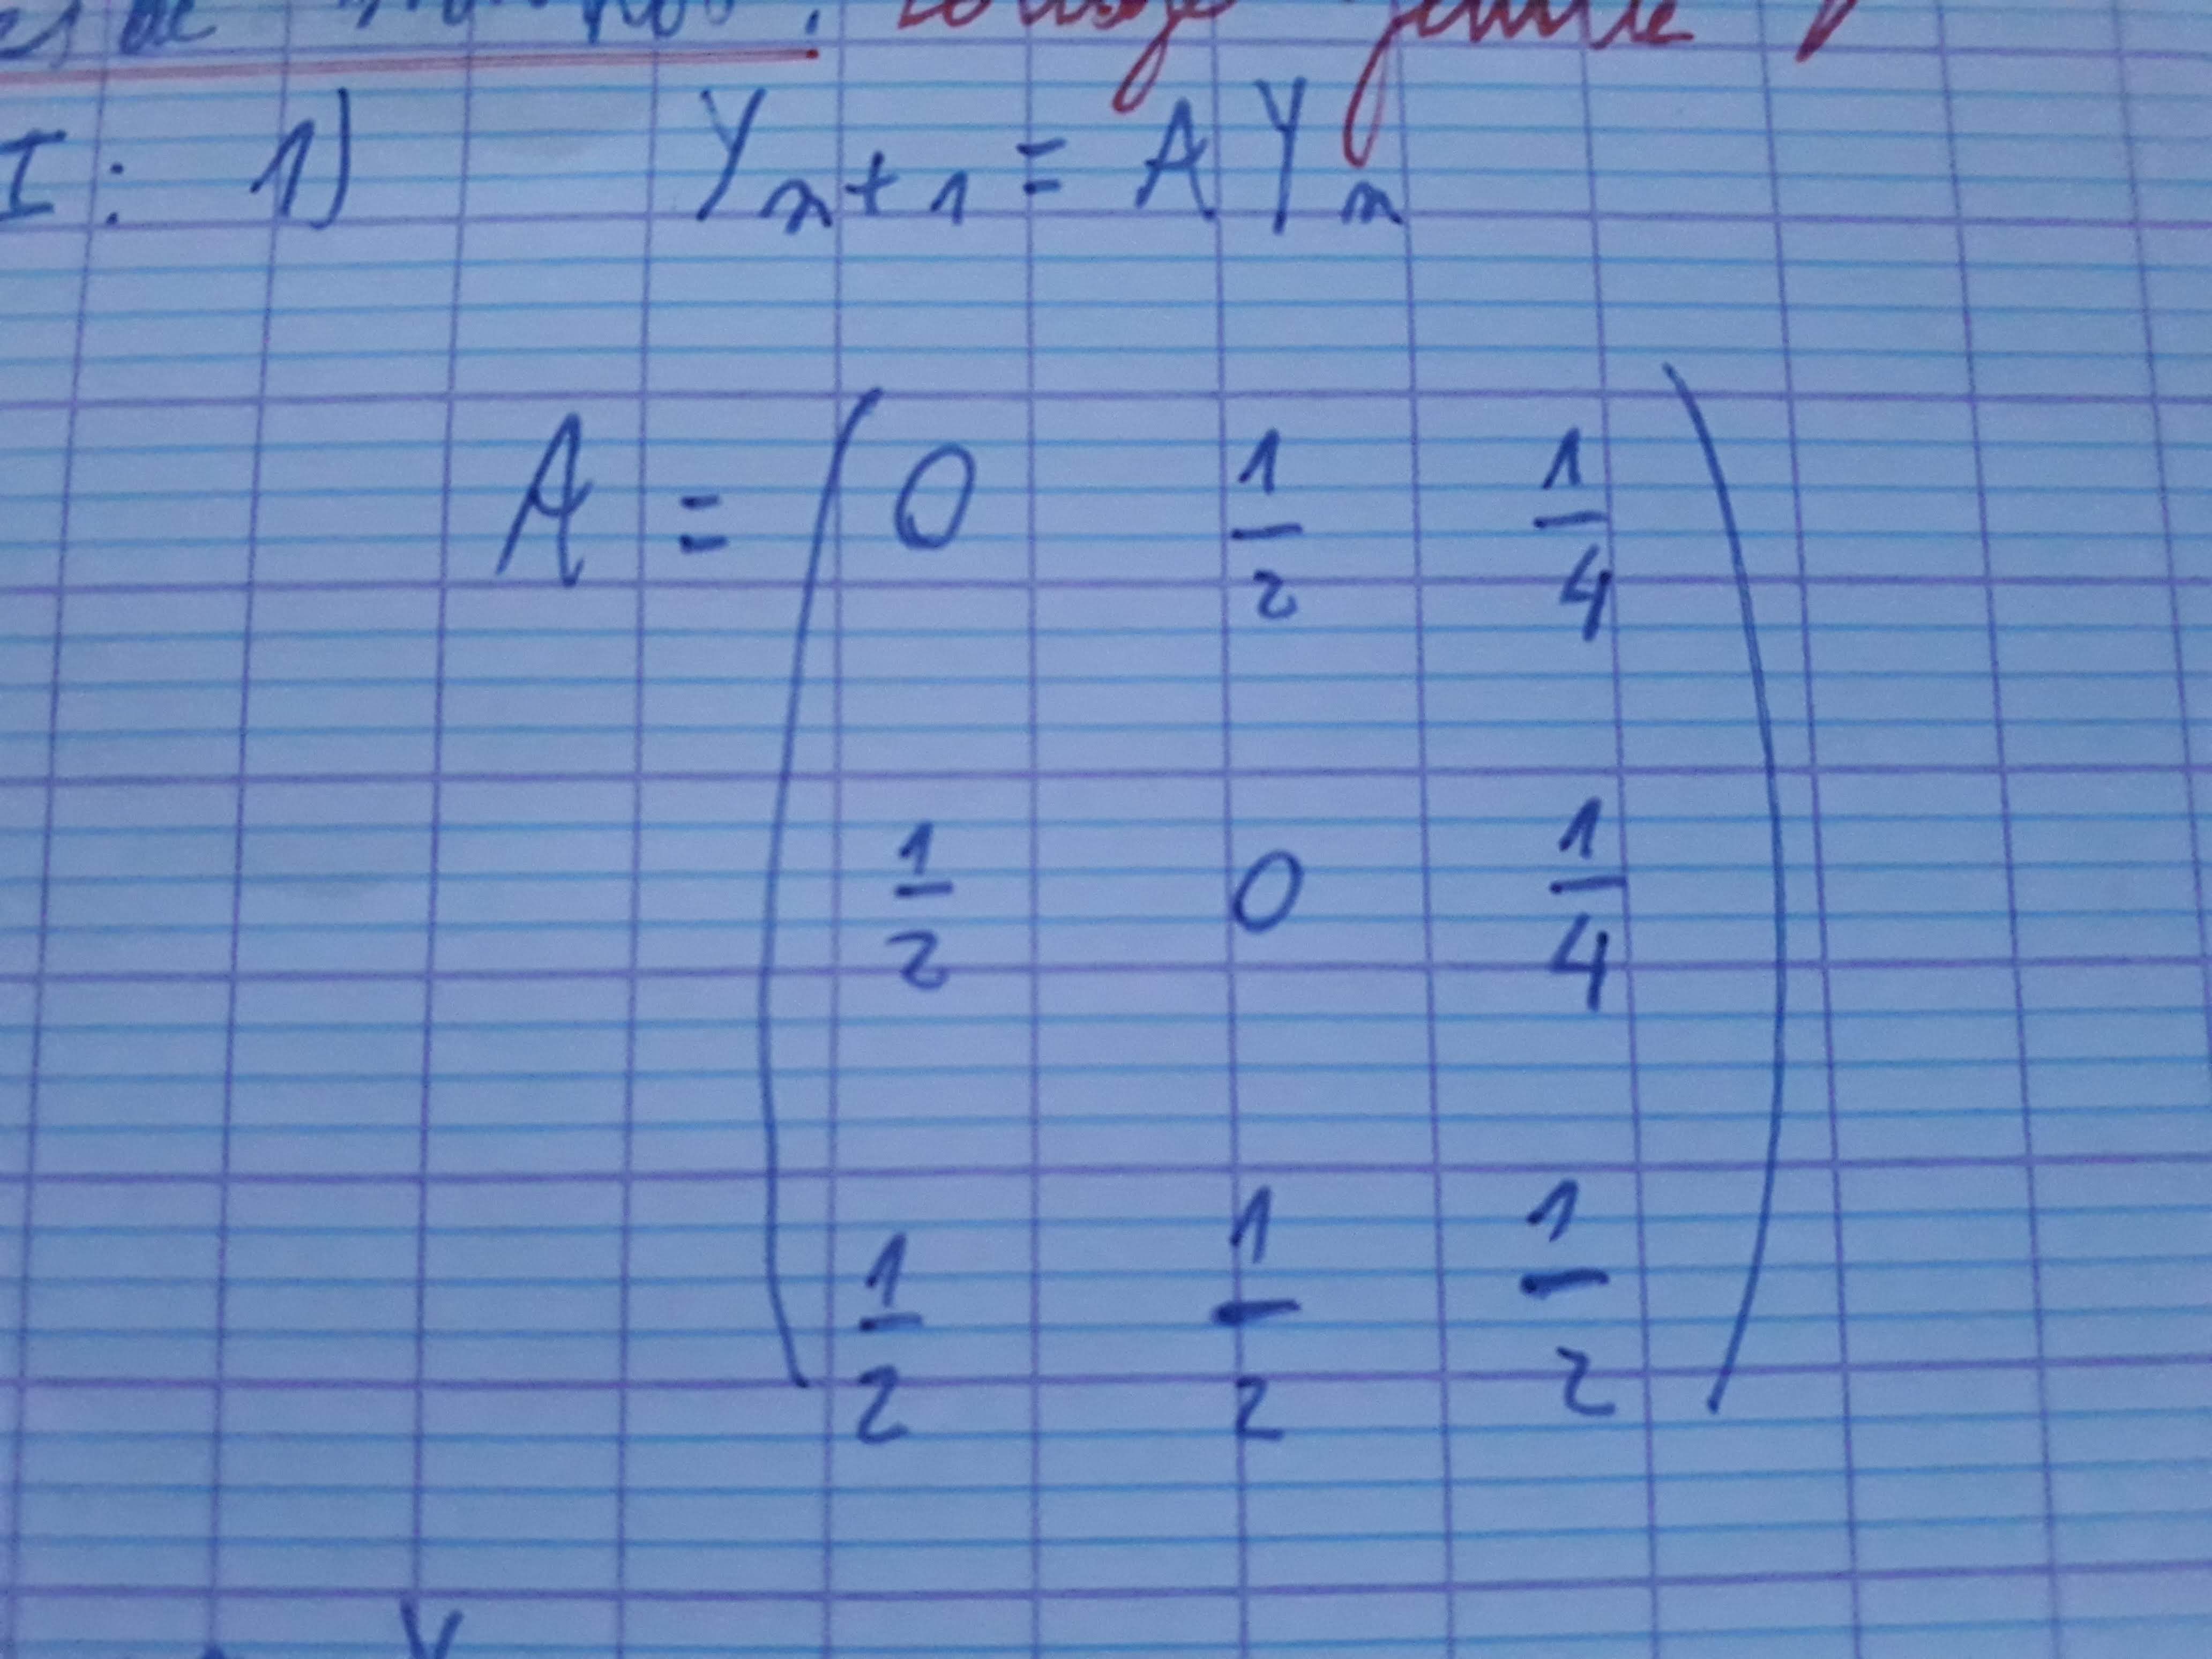 I : 1) Y_{n+1} = A Y_n
A = ( 0 1/2 1/4
1/2 0 1/4
1/2 1/2 1/2 )